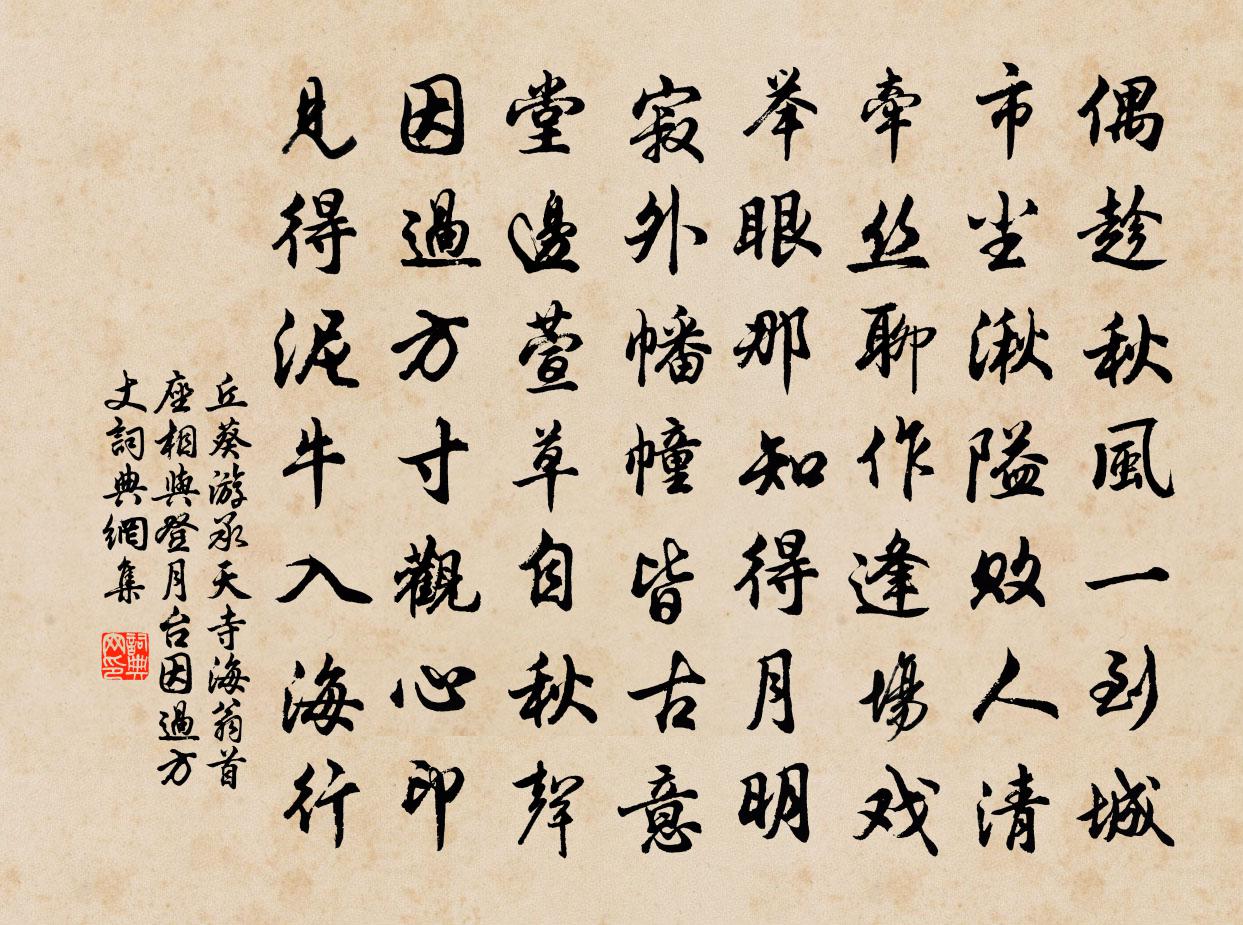 偶趁秋風一到城
市尘湫隘败人清
牵丝聊作逢場戏
举眼那知得月明
寂外幡幢皆古意
堂邊萱草自秋聲
因過方寸觀心印
見得泥牛入海行
丘葵游承天寺海翁首
座相與登月台因過方
丈詞典網集
詞典网印